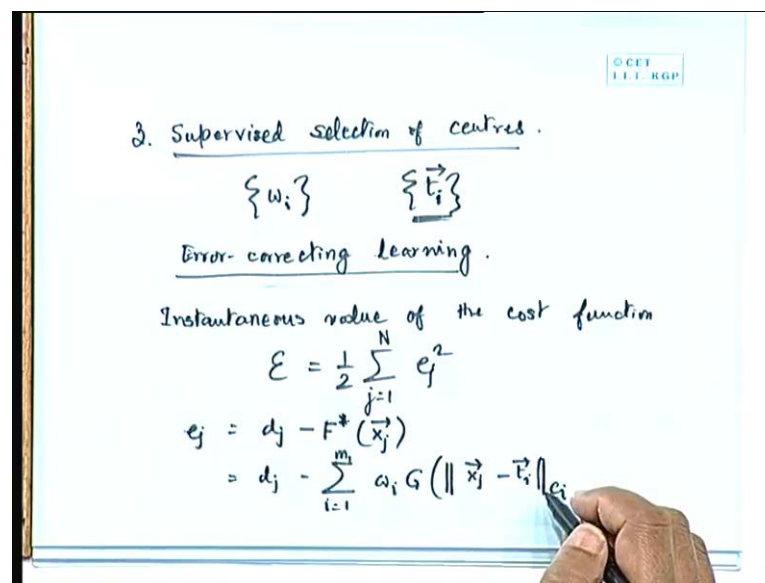 © CET
I.I.T. KGP
3. Supervised selection of centres.
{ω_i} {\vec{t_i}}
Error-correcting learning.
Instantaneous value of the cost function
ℰ = \frac{1}{2} \sum_{j=1}^{N} e_j^2
e_j = d_j - F^*(\vec{x_j})
= d_j - \sum_{i=1}^{m_1} ω_i G(‖\vec{x_j} - \vec{t_i}‖_{C_i}